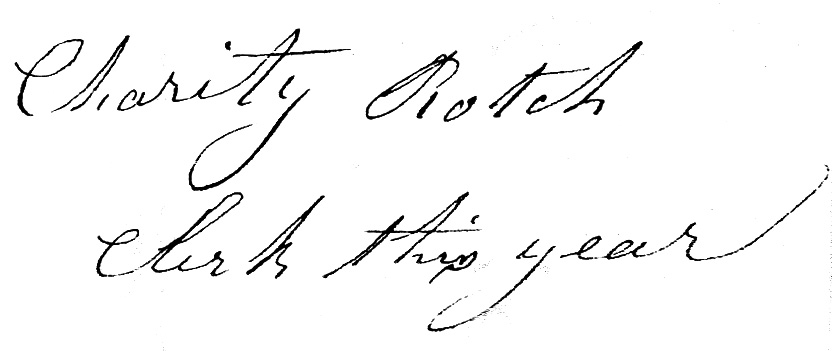 Charity Rotch
Clerk this year